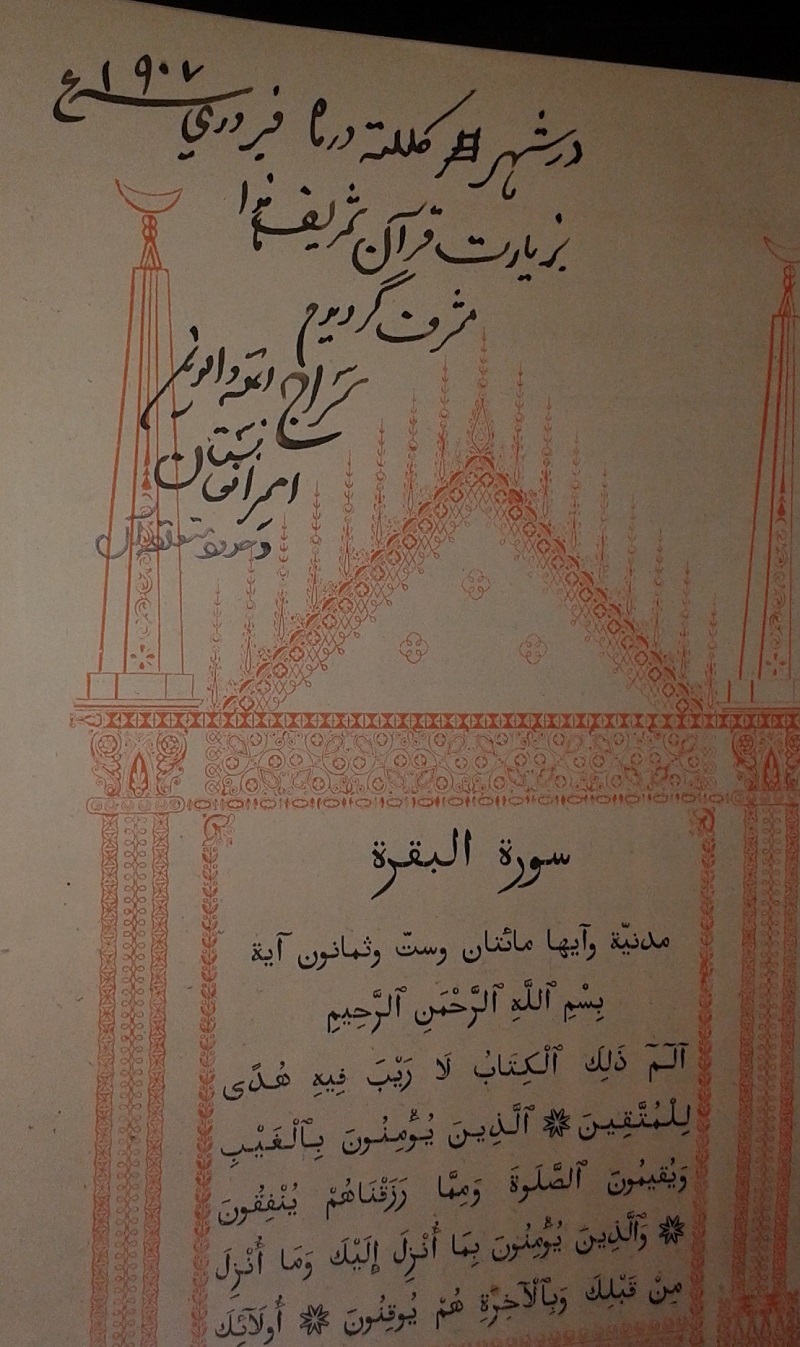 ١٩٠٧ع
در شهر كلكته در ماه فيروري
بزيارت قرآن شريف
مشرف گرديدم
سراج الملة والدين
امير افغانستان
سورة البقرة
مدنيّة وآيها مائتان وستّ وثمانون آية
بِسْمِ ٱللَّهِ ٱلرَّحْمَنِ ٱلرَّحِيمِ
آلٓمٓ ذَلِكَ ٱلْكِتَابُ لَا رَيْبَ فِيهِ هُدًى
لِلْمُتَّقِينَ ۞ ٱلَّذِينَ يُؤْمِنُونَ بِٱلْغَيْبِ
وَيُقِيمُونَ ٱلصَّلَوةَ وَمِمَّا رَزَقْنَاهُمْ يُنْفِقُونَ
۞ وَٱلَّذِينَ يُؤْمِنُونَ بِمَا أُنْزِلَ إِلَيْكَ وَمَا أُنْزِلَ
مِنْ قَبْلِكَ وَبِٱلْآخِرَةِ هُمْ يُوقِنُونَ ۞ أُولَآئِكَ